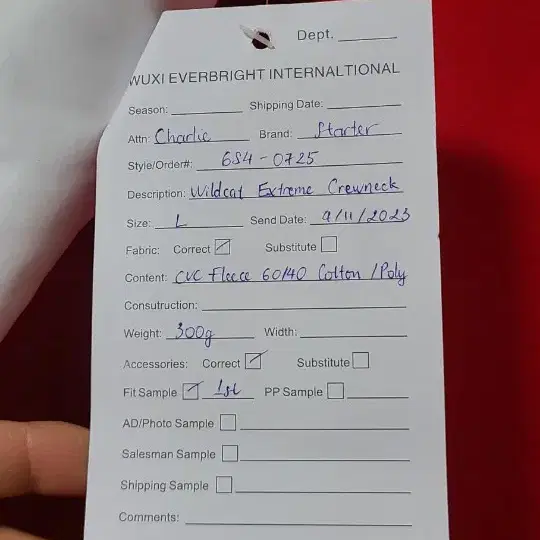 Dept.
WUXI EVERBRIGHT INTERNALTIONAL
Season: Shipping Date:
Attn: Charlie Brand: Starter
Style/Order#: 6S4-0725
Description: Wildcat Extreme Crewneck
Size: L Send Date: 9/11/2023
Fabric: Correct Substitute
Content: CVC Fleece 60/40 Cotton / Poly
Consutruction:
Weight: 300g Width:
Accessories: Correct Substitute
Fit Sample 1st PP Sample
AD/Photo Sample
Salesman Sample
Shipping Sample
Comments: